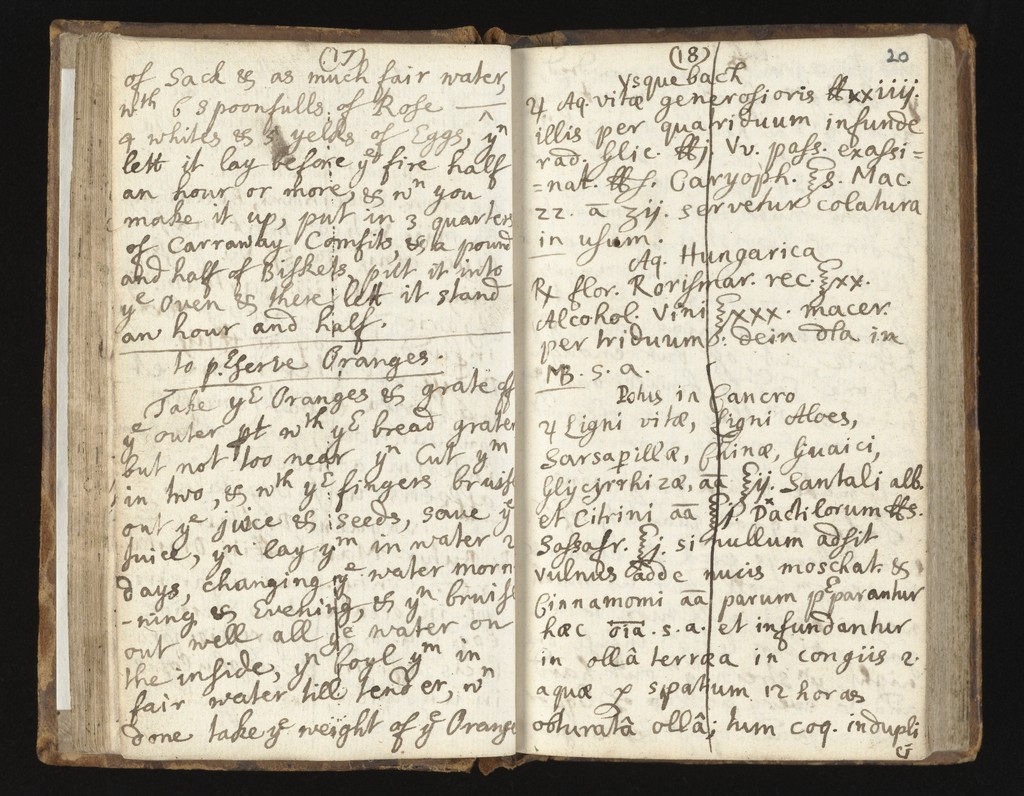 (17)
of Sack & as much fair water,
wth 6 spoonfulls of Rose
4 whites & 5 yelks of Eggs, yn
lett it lay before ye fire half
an hour or more, & wn you
make it up, put in 3 quarters
of Carraway Comfits, & a pound
and half of Biskets, put it into
ye Oven & there lett it stand
an hour and half.
to pserve Oranges.
Take ye Oranges & grate off
ye outer pt wth ye bread grater
but not too near yn Cut ym
in two, & wth ye fingers bruise
out ye juice & seeds, save ye
Juice, yn lay ym in water 2
days, changing ye water morn
-ning & Evening, & yn bruise
out well all ye water on
the inside, yn boyl ym in
fair water till tender, wn
done take ye weight of ye Orange
(18)
20
Ysquebach
♃ Aq. vitæ generosioris ℔xxiiij.
illis per quatriduum infunde
rad. Glic. ℔j. Vv. pass. exassi=
=nat. ℔ſ. Caryoph. ℥s. Mac.
zz. ā ʒij. servetur colatura
in usum.
Aq. Hungarica
℞ flor. Rorismar. rec. ℥xx.
Alcohol. Vini ℥xxx. macer.
per triduum. dein dla in
MB. s. a.
Potus in Cancro
♃ Ligni vitæ, Ligni Aloes,
Sarsaprillæ, Chinæ, Guaici,
Glycyrrhizæ, āā ℥ij. Santali alb.
et Citrini āā ℥j. Dactilorum ℔s.
Sassafr. ℥j. si nullum adsit
vulnus adde nucis moschat. &
Cinnamomi āā parum pparantur
hæc oīa. s. a. et infundantur
in ollâ terræa in congiis 2.
aquæ p spatium 12 horas
obturatâ ollâ; tum coq. indupli
ci